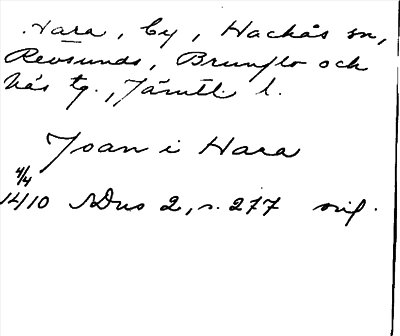 Hara, by, Hackås sn,
Revsunds, Brunflo och
Näs tg., Jämtl. l.
Joan i Hara
4/4
1410 NDns 2, s. 277 orig.